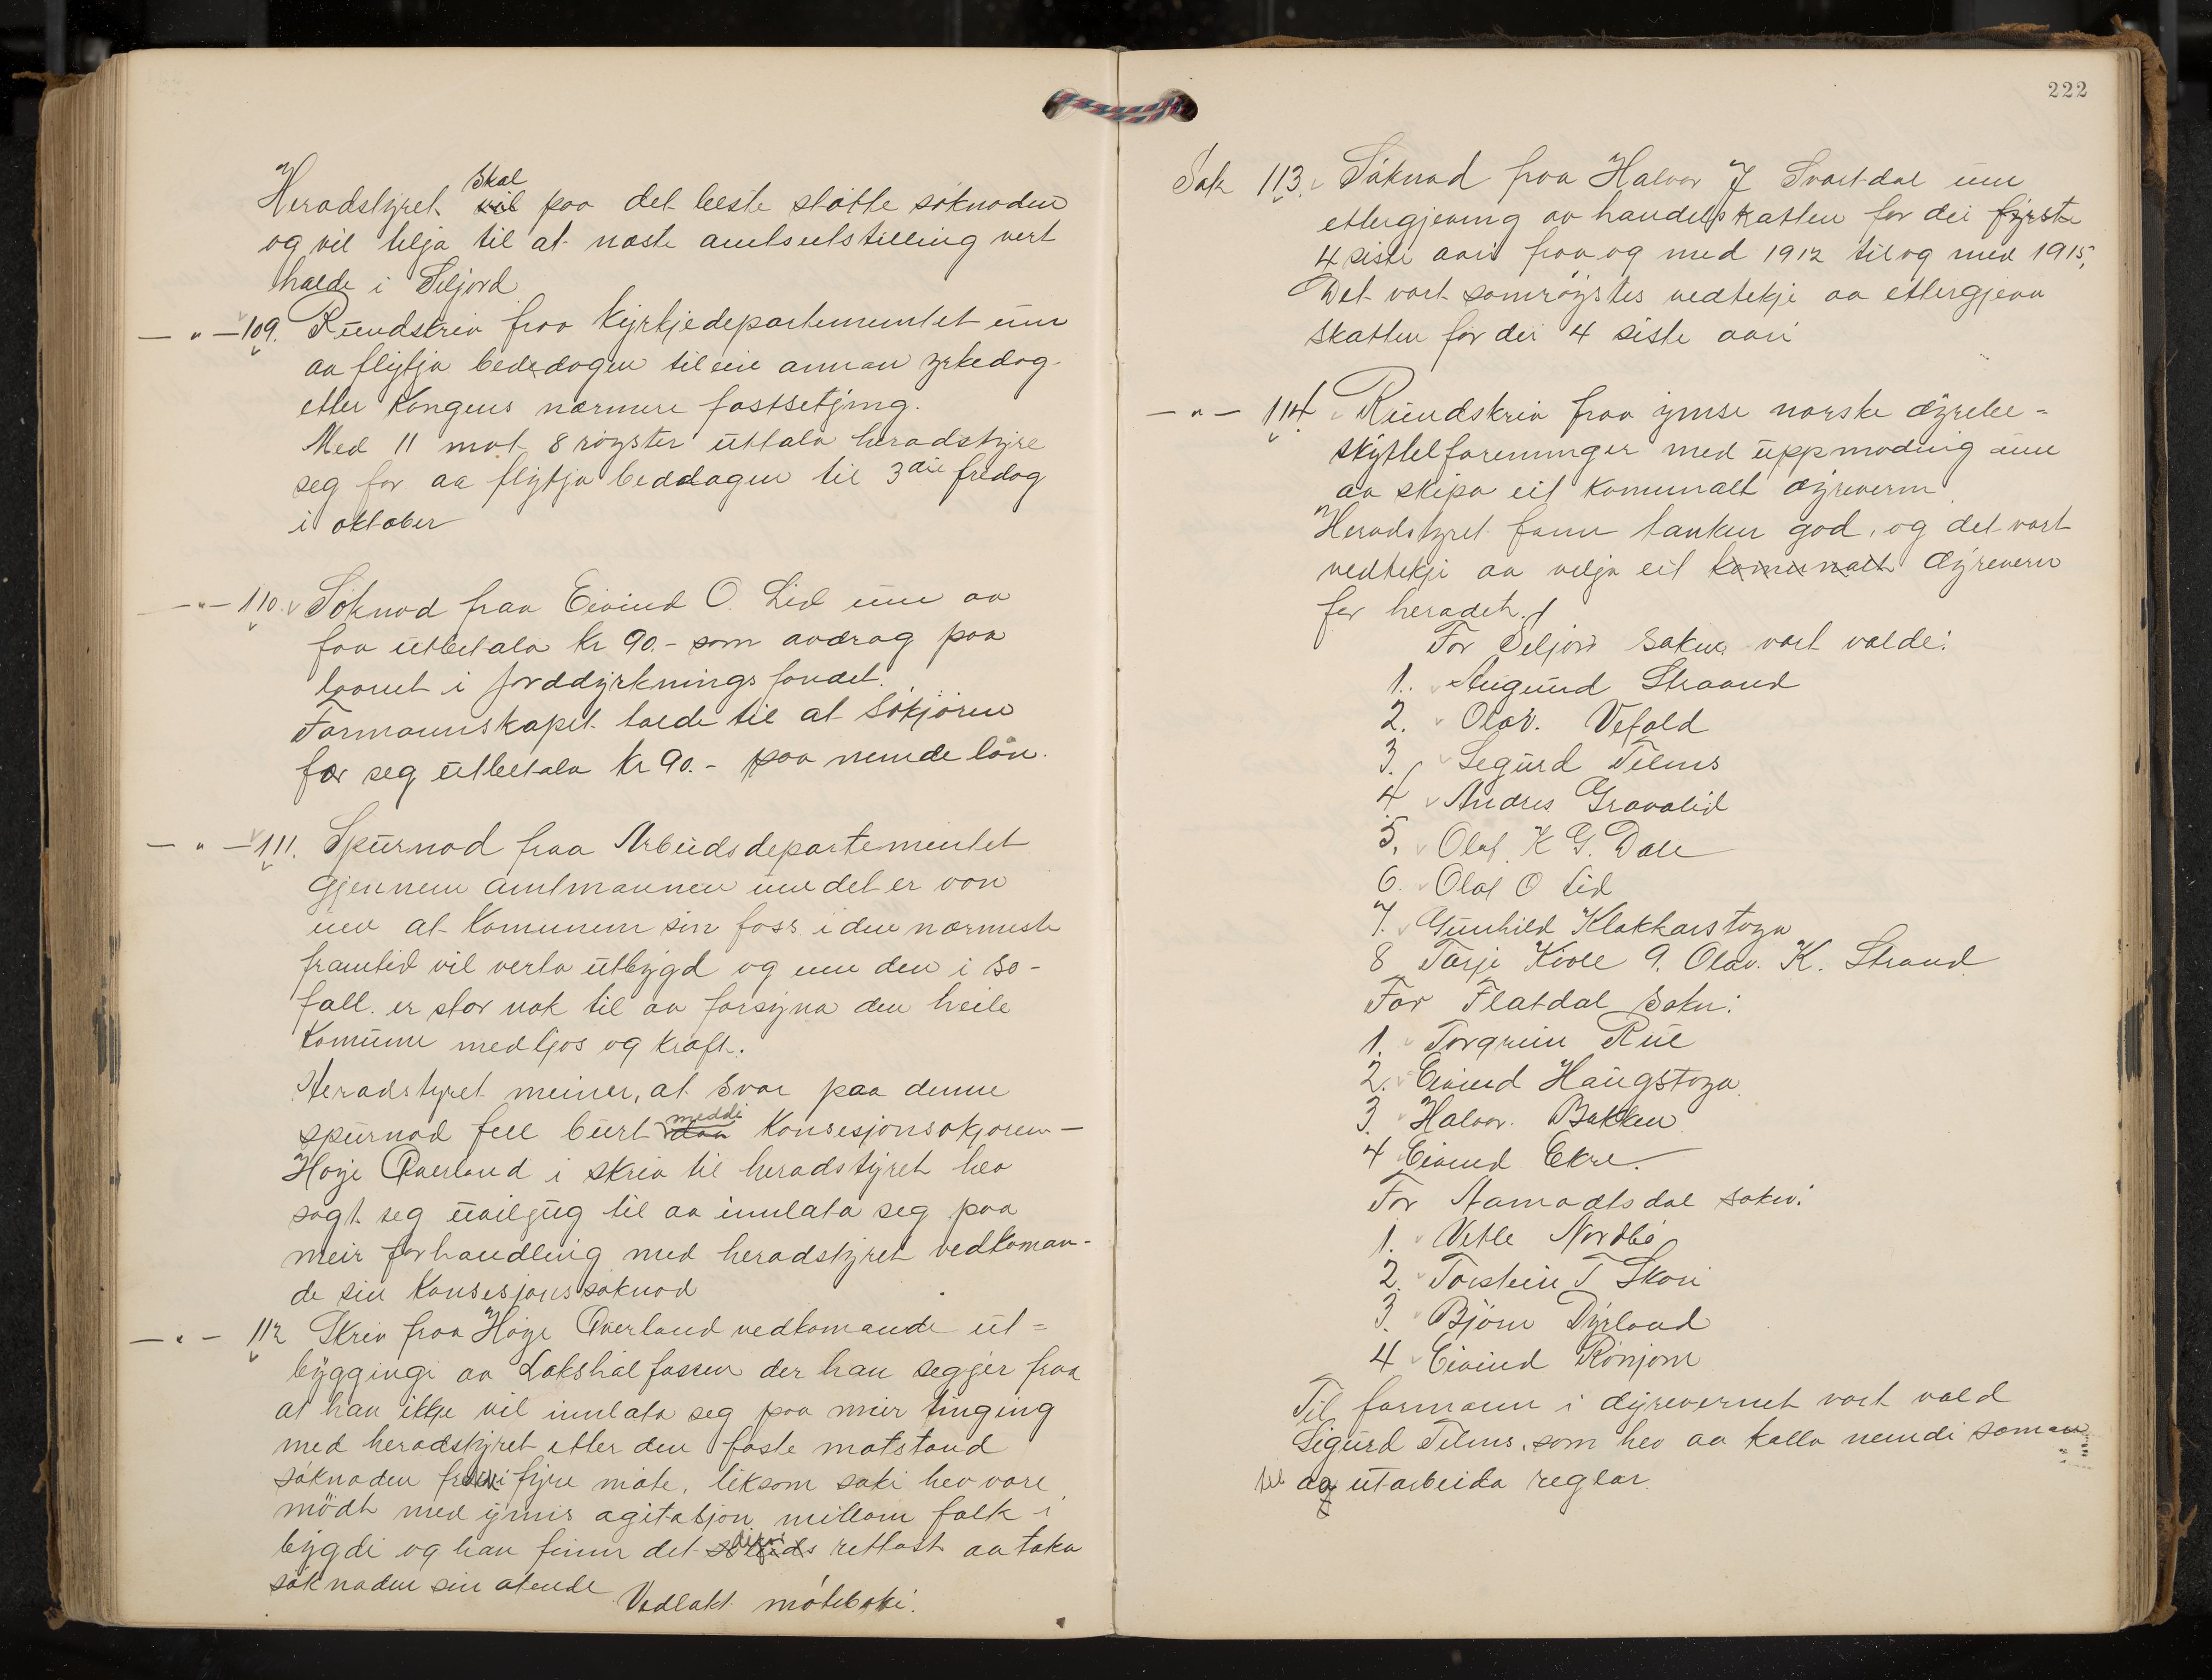 Skal
Heradstyret vil paa det beste støtte søknaden
og vil tilja til at næste amtsutstilling vert
halde i Seljord
— " — 109. Rundskriv fraa Kyrkjedepartementet um
aa flytja bededagen til ein annan yrkedag
etter Kongens nærmere fastsetjing.
Med 11 mot 8 røyster uttala heradstyre
seg for aa flytja beddagen til 3die fredag
i oktober
— " — 110. Søknad fraa Eivind O. Lid um aa
faa utbetala kr 90.- som avdrag paa
laanet i jorddyrkningsfondet.
Formannskapet tilrådde til at Søkjaren
fær seg utbetala kr 90.- paa nemde lån.
— " — 111. Spurnad fraa Arbeidsdepartementet
gjennem amtmannen um det er von
um at Komunen sin foss i den nærmeste
framtid vil verta utbygd og um den i so-
fall er stor nok til aa forsyna den heile
Komune med ljos og kraft.
Heradstyret meiner, at svar paa denne
meddi
spurnad fell burt daa Konsesjonsøkjaren —
Høye Qverland i skriv til heradstyret hev
sagt seg uviljug til aa innlata seg paa
meir forhandling med heradstyret vedkoman-
de sin Konsesjonssøknad
— " — 112 Skriv fraa Høye Qverland vedkomande ut=
byggingi av Lakshølfossen der han segjer fraa
at han ikkje vil innlata seg paa meir tinging
med heradstyret etter den faste motstand
søknaden i fyre møte, liksom saki hev vore
mødt med ymis agitasjon millom folk i
bygdi og han finn det rettast aa taka
søknaden sin atende. Vedlakt møteboki.
222
Sak 113. Søknad fraa Halvor J Svartdal um
ettergjeving av handelsskatten for dei fyrste
4 siste aari fraa og med 1912 til og med 1915,
Det vart samrøystes vedtekje aa ettergjeva
skatten for dei 4 siste aari
— " — 114 Rundskriv fraa ymse norske dyrebe=
skyttelforeninger med uppmoding um
aa skipa eit komunalt dyrevern.
Heradstyret fann tanken god, og det vart
vedtekji aa velja eit komunalt dyrevern
for heradet.
For Seljord Sokn vart valde:
1. Augund Straand
2. Olav. Vefald
3. Sigurd Telnes
4. Andres Gravalid
5. Olaf. K G. Dale
6. Olaf O Lid
7. Gunhild Klakkarstoga
8 Tarje Kivle 9. Olav. K. Strand
For Flatdal Sokn:
1. Torgrim Rue
2. Eivind Haugstoga
3. Halvor. Bakken
4 Eivind Ekre.
For Aamodtsdal sokn:
1. Vetle Nordbø
2. Torstein T Skori
3. Bjørn Dyrland
4 Eivind Rønjom
Til formann i dyrevernet vart vald
Sigurd Telnes, som hev aa kalla nemdi saman
til aa utarbeida reglar.